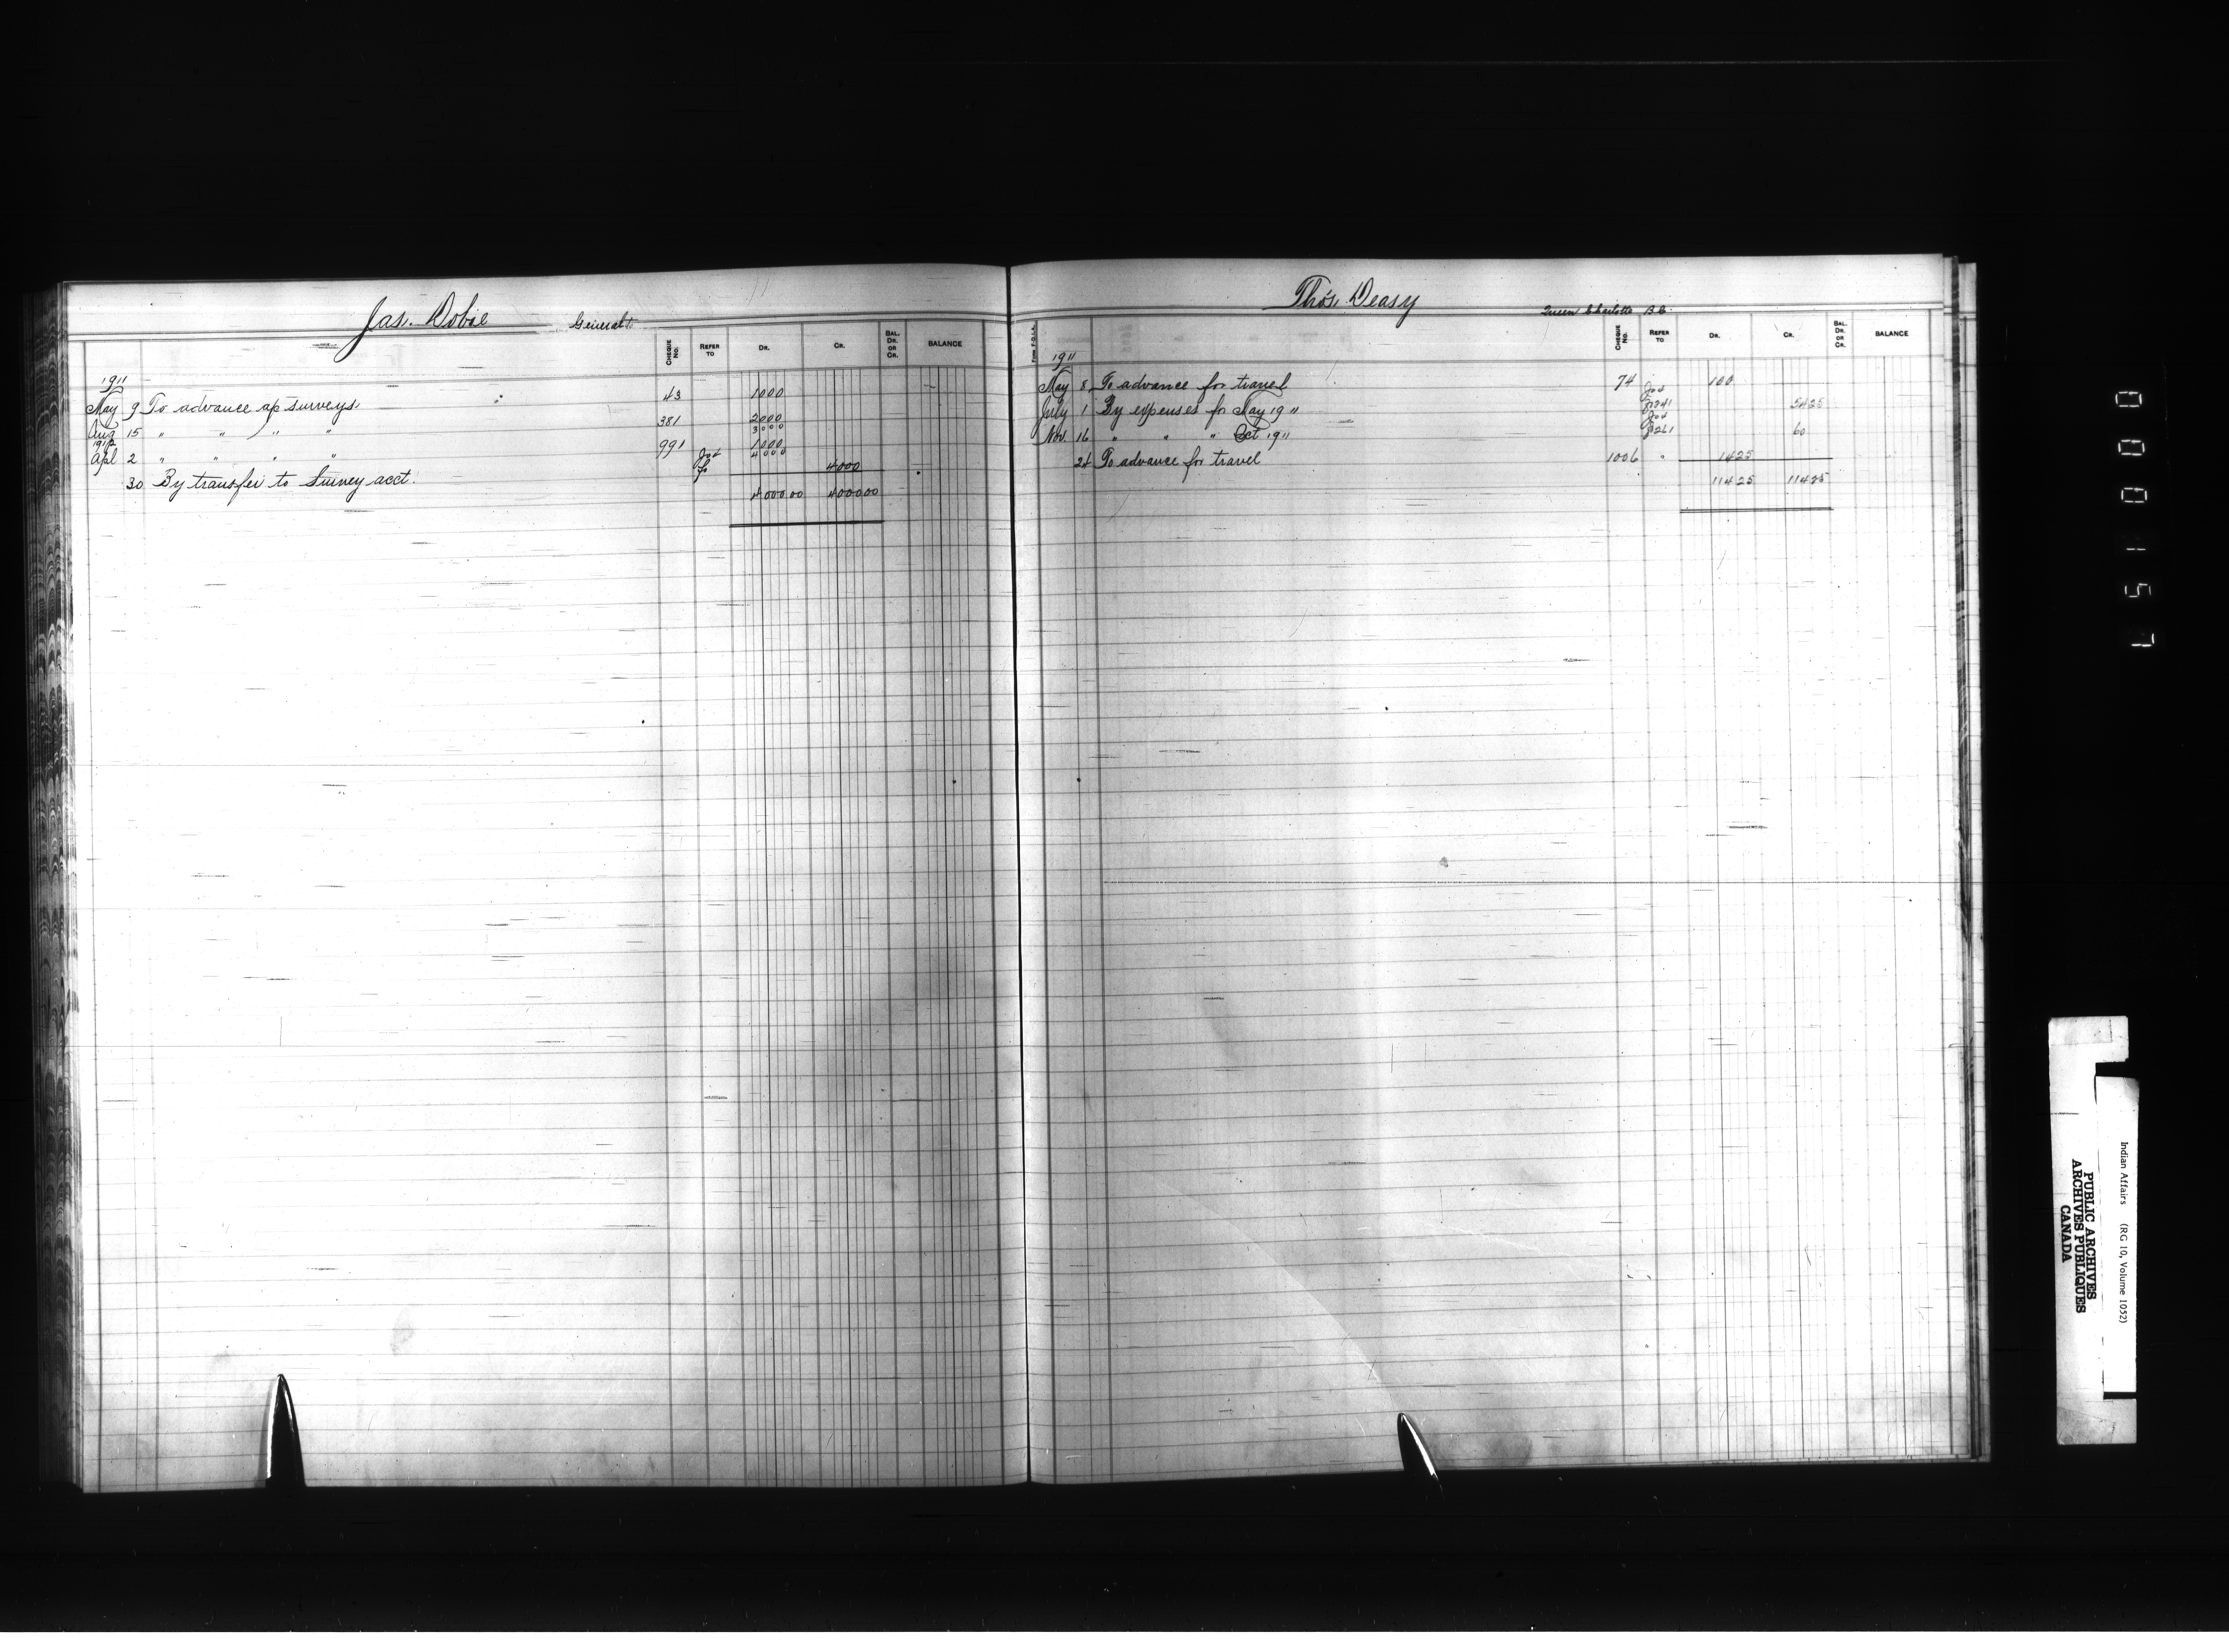 Jas. Dobie General
CHEQUE No. REFER TO DR. CR. BAL. DR. OR CR. BALANCE
1911
May 9 To advance ap surveys 43 1000
Aug 15 " " " " 381 2000
3000
1912
Apl 2 " " " " 991 1000
4000
30 By transfer to Survey acct. 4000
4000 00 4000 00
Thos. Deasy Queen Charlotte B.C.
Form F.O.L.A. CHEQUE No. REFER TO DR. CR. BAL. DR. OR CR. BALANCE
1911
May 8 To advance for travel 74 100
July 1 By expenses for May 1911 54 25
Nov. 16 " " " Oct 1911 60
24 To advance for travel 1006 " 14 25
114 25 114 25
000157
Indian Affairs (RG 10, Volume 1052)
PUBLIC ARCHIVES
ARCHIVES PUBLIQUES
CANADA